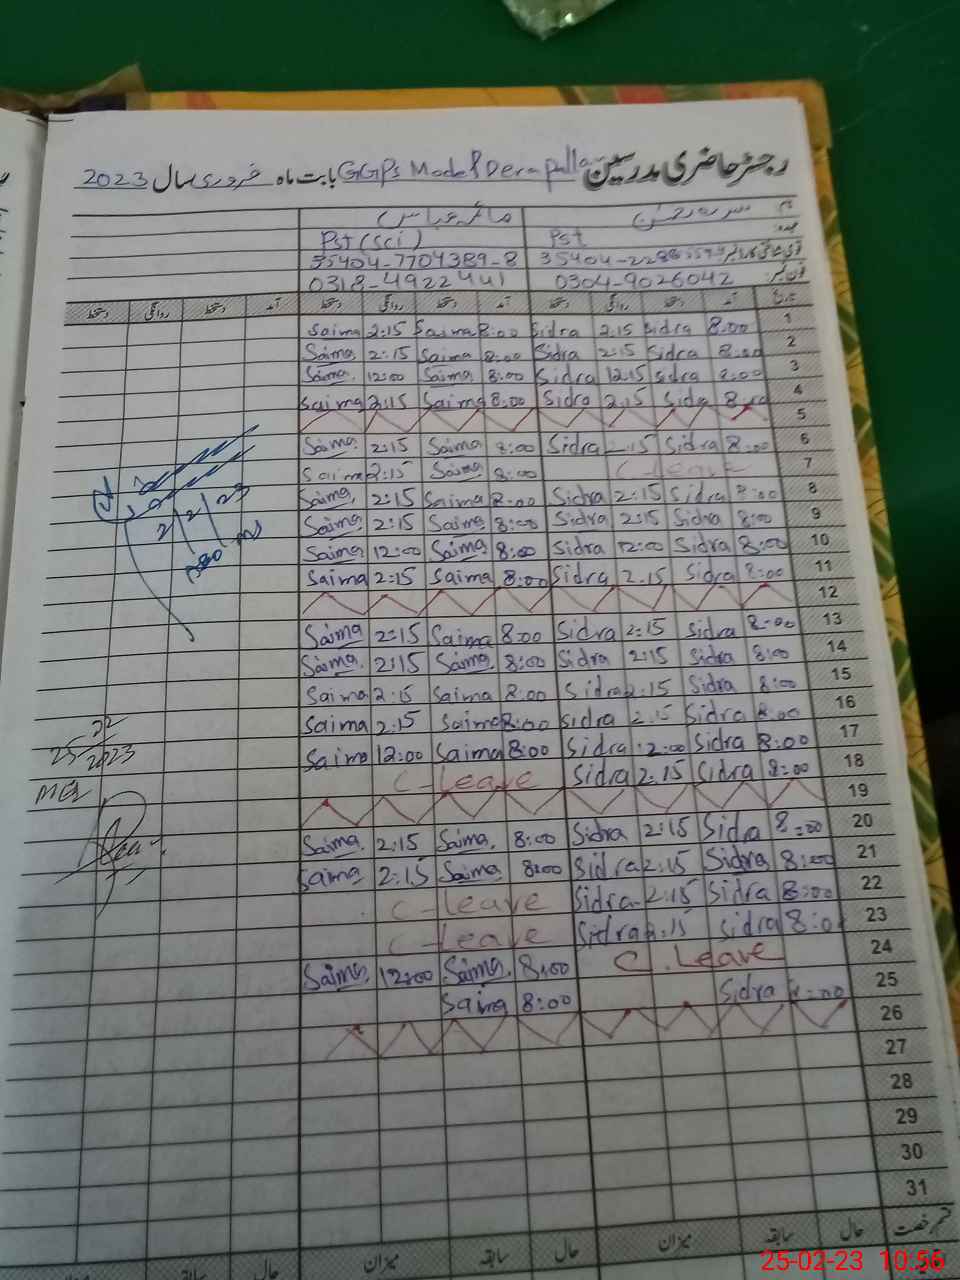 رجسٹر حاضری مدرسین GGPs Model Dera pulla بابت ماہ فروری سال 2023
نام
عہدہ Pst Pst (Sci)
35404-7704389-8
فون نمبر 0304-9026042 0318-4922441
تاریخ آمد دستخط روانگی دستخط آمد دستخط روانگی دستخط آمد دستخط روانگی دستخط
Saima 2:15 Saima 8:00 Sidra 2:15 Sidra 8:00 1
Saima 2:15 Saima 8:00 Sidra 2:15 Sidra 8:00 2
Saima 12:00 Saima 8:00 Sidra 12:15 Sidra 8:00 3
Saima 2:15 Saima 8:00 Sidra 2:15 Sidra 8:00 4
5
Saima 2:15 Saima 8:00 Sidra 2:15 Sidra 8:00 6
Saima 2:15 Saima 8:00 C-Leave 7
Saima 2:15 Saima 8:00 Sidra 2:15 Sidra 8:00 8
Saima 2:15 Saima 8:00 Sidra 2:15 Sidra 8:00 9
Saima 12:00 Saima 8:00 Sidra 12:00 Sidra 8:00 10
Saima 2:15 Saima 8:00 Sidra 2:15 Sidra 8:00 11
12
Saima 2:15 Saima 8:00 Sidra 2:15 Sidra 8:00 13
Saima 2:15 Saima 8:00 Sidra 2:15 Sidra 8:00 14
Saima 2:15 Saima 8:00 Sidra 2:15 Sidra 8:00 15
Saima 2:15 Saima 8:00 Sidra 2:15 Sidra 8:00 16
Saima 12:00 Saima 8:00 Sidra 12:00 Sidra 8:00 17
C-Leave Sidra 2:15 Sidra 8:00 18
19
Saima 2:15 Saima 8:00 Sidra 2:15 Sidra 8:00 20
Saima 2:15 Saima 8:00 Sidra 2:15 Sidra 8:00 21
C-Leave Sidra 2:15 Sidra 8:00 22
C-Leave Sidra 2:15 Sidra 8:00 23
Saima 12:00 Saima 8:00 C.Leave 24
Saima 8:00 Sidra 8:00 25
26
27
28
29
30
31
قسم رخصت حال سابقہ میزان حال سابقہ میزان حال سابقہ
25-02-23 10:56